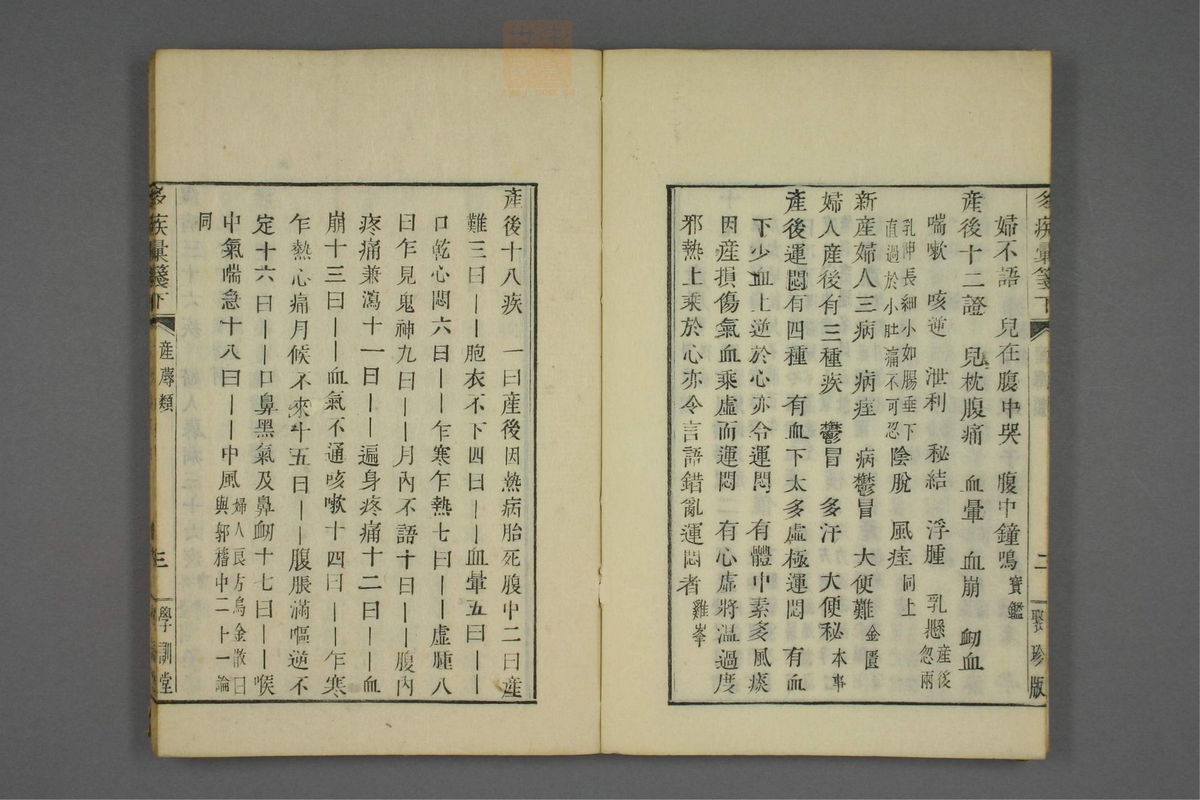 婦不語　兒在腹中哭　腹中鐘鳴寶鑑
産後十二證　兒枕腹痛　血暈　血崩　衂血
喘嗽　咳逆　泄利　秘結　浮腫　乳懸産後忽兩
乳伸長細小如腸垂下直過於小肚痛不可忍陰脫　風痓同上
新産婦人三病　病痓　病鬱冒　大便難金匱
婦人産後有三種疾　鬱冒　多汗　大便秘本事
産後運悶有四種　有血下太多虛極運悶　有血
下少血上逆於心亦令運悶　有體中素多風痰
因産損傷氣血乘虛而運悶　有心虛將温過度
邪熱上乘於心亦令言語錯亂運悶者雞峯
多疾彙箋下
二
聚珍版
産後十八疾　一曰産後因熱病胎死腹中二曰産
難三曰――胞衣不下四曰――血暈五曰――
口乾心悶六曰――乍寒乍熱七曰――虛腫八
曰乍見鬼神九曰――月內不語十曰――腹內
疼痛兼瀉十一曰――遍身疼痛十二曰――血
崩十三曰――血氣不通咳嗽十四曰――乍寒
乍熱心痛月候不來十五曰――腹脹滿嘔逆不
定十六曰――口鼻黑氣及鼻衂十七曰――喉
中氣喘急十八曰――中風婦人良方烏金散曰與郭稽中二十一論
同
多疾彙箋下
産蓐類
三
學訓堂